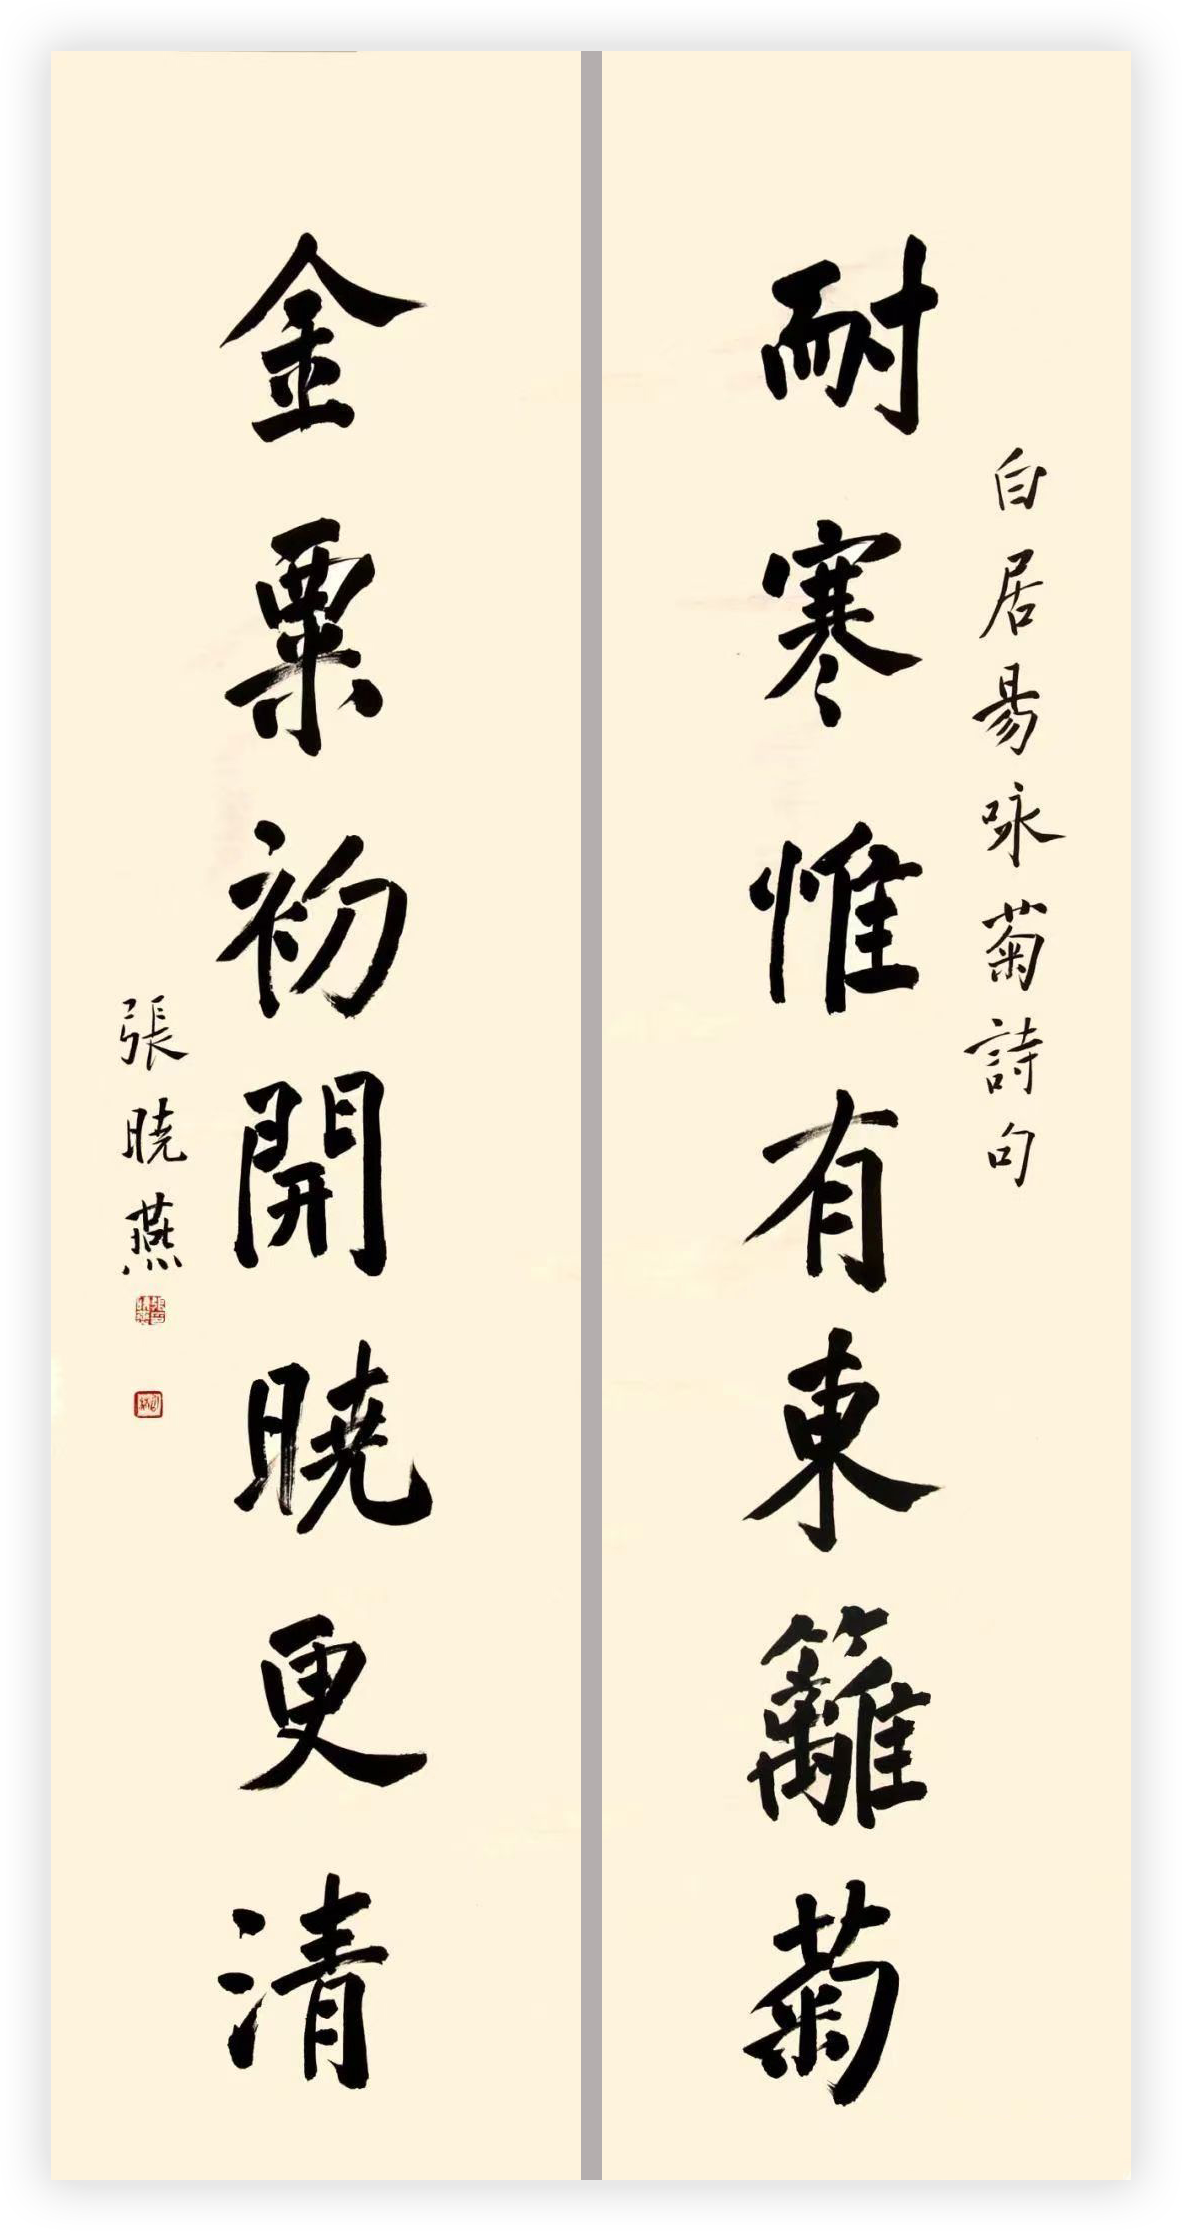 白居易咏菊詩句
耐寒惟有東籬菊
金粟初開曉更清
張曉燕